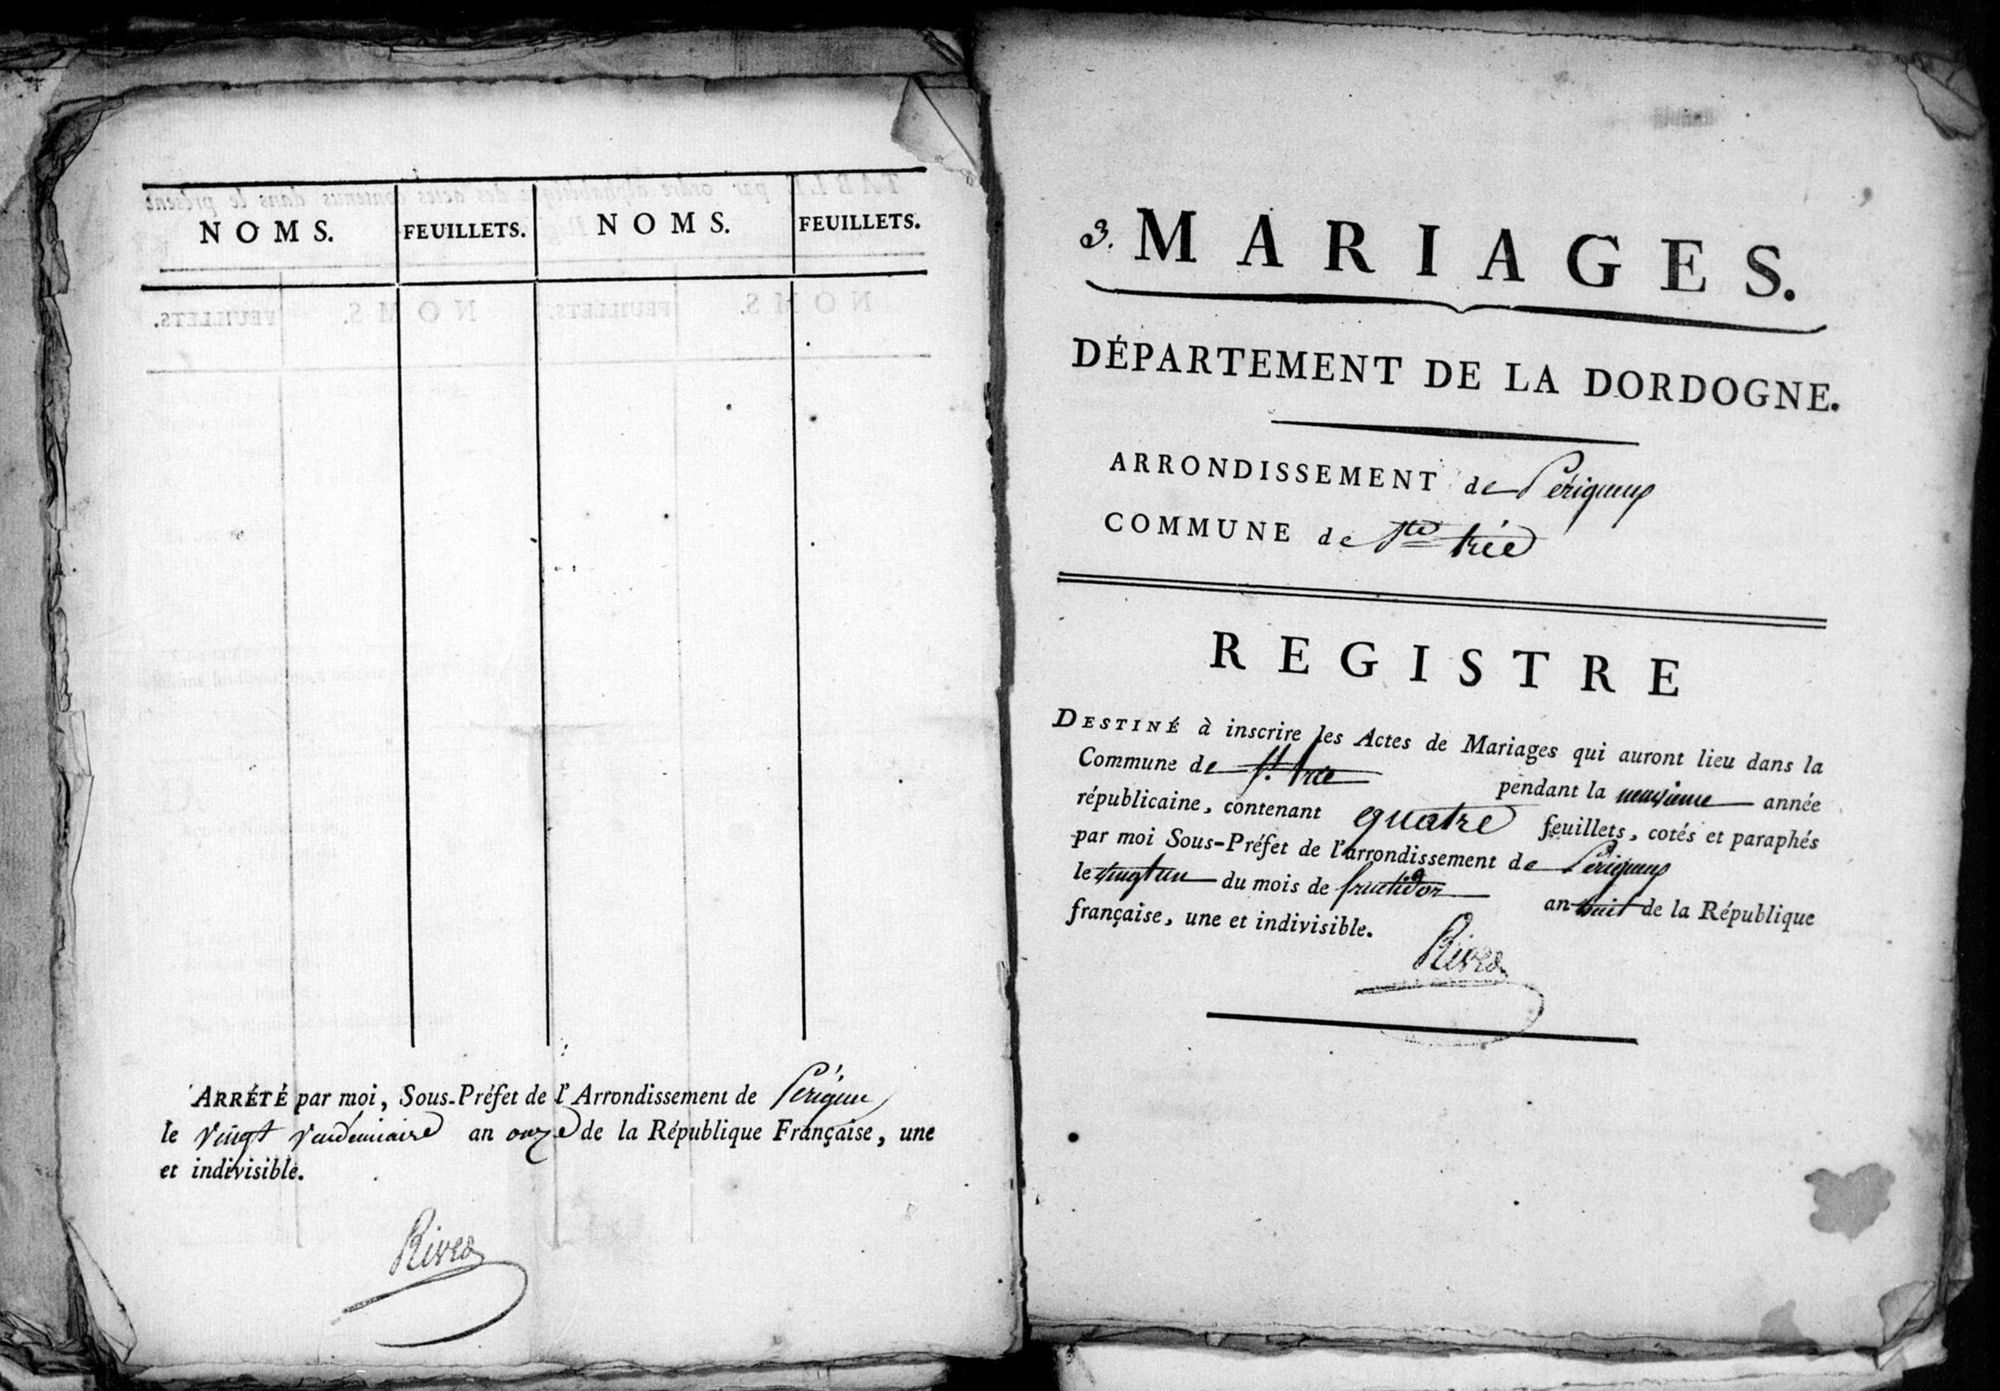 NOMS. FEUILLETS. NOMS. FEUILLETS.
ARRÉTÉ par moi, Sous-Préfet de l'Arrondissement de Périgueux
le vingt vendemiaire an onze de la République Française, une
et indivisible.
Rives
3. MARIAGES.
DÉPARTEMENT DE LA DORDOGNE.
ARRONDISSEMENT de Périgueux
COMMUNE de Ste trie
REGISTRE
DESTINÉ à inscrire les Actes de Mariages qui auront lieu dans la
Commune de St. trie pendant la neuvieme année
républicaine, contenant quatre feuillets, cotés et paraphés
par moi Sous-Préfet de l'arrondissement de Périgueux
le vingt un du mois de fructidor an huit de la République
française, une et indivisible.
Rives